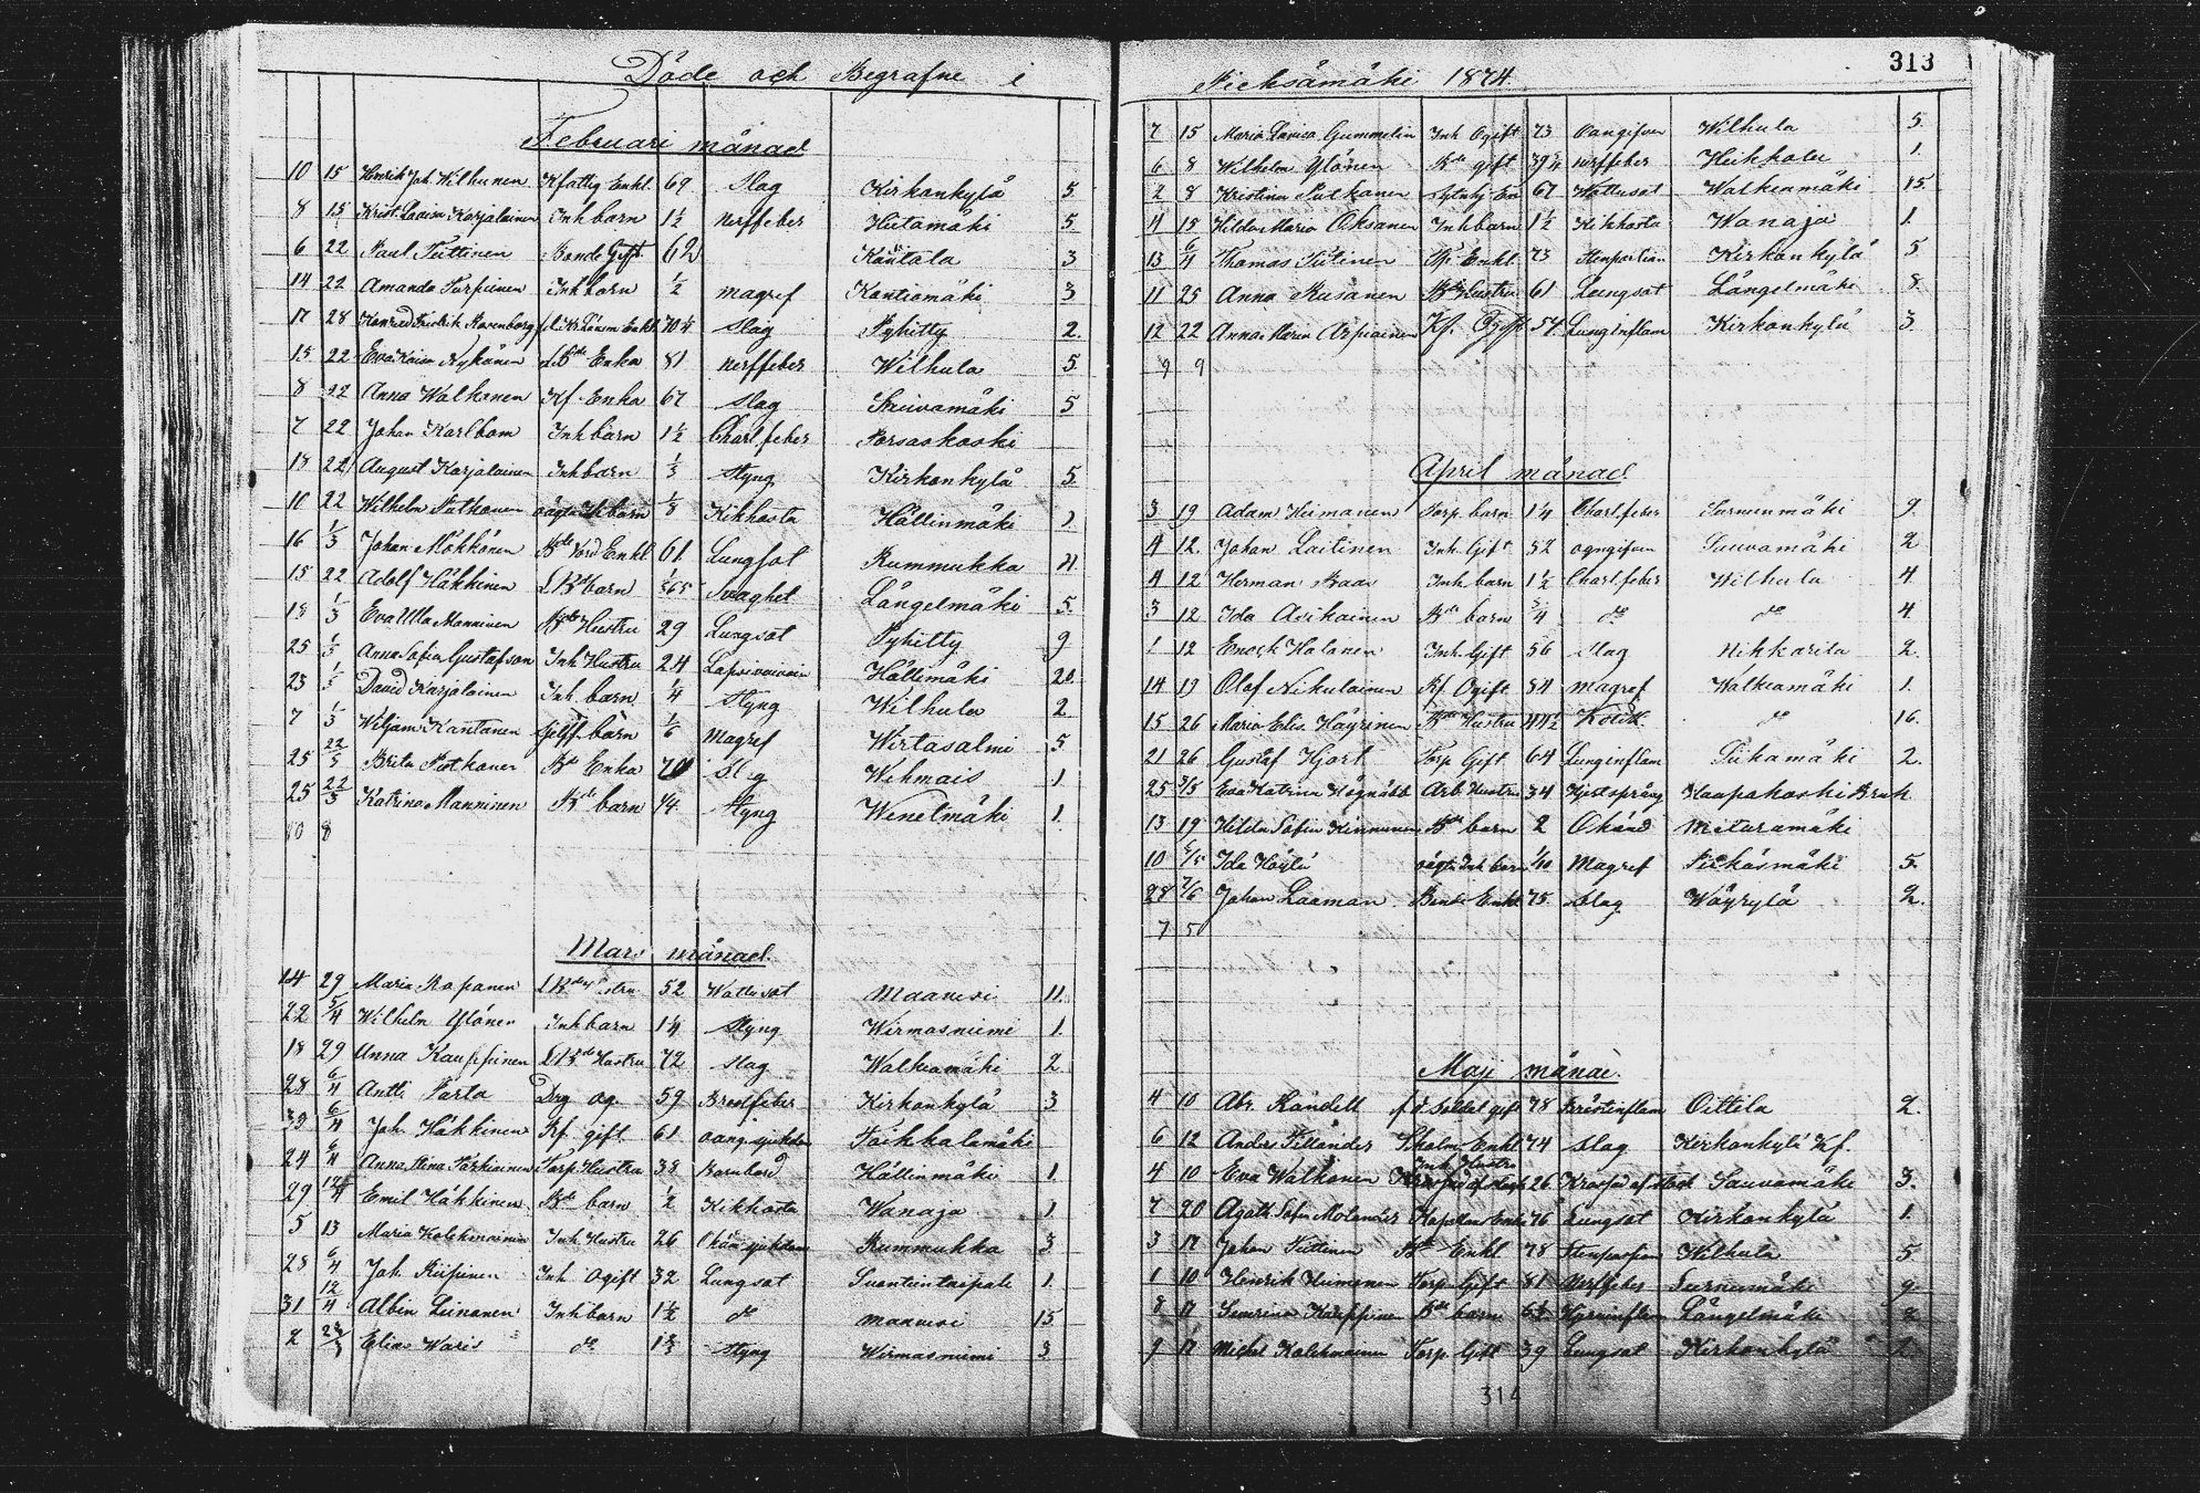 Döde och Begrafne i
Februari månad
10 15 Henrik Joh. Wilhunen Kfattig Enkl. 69 Slag Kirkonkylä 5
8 15 Krist. Lovisa Karjalainen Inh barn 1½ Nerffeber Hiitamäki 5
6 22 Paul Tuttinen Bonde Gift 62 Kantala 3
14 22 Amanda Turpeinen Inh barn ½ magref Kontiomäki 3
17 28 Konrad Fredrik Rosenborg Enkl. 70¼ Slag Pyhitty 2.
15 22 Eva Kaisa Nykänen Bde Enka 81 nerffeber Wilhula 5
8 22 Anna Walkonen Kf. Enka 67 Slag Sauvamäki 5
7 22 Johan Karlbom Inh barn 1½ Charl. feber Porsaskoski
18 22 August Karjalainen Inh barn ⅓ Styng Kirkonkylä 5
10 22 Wilhelm Putkonen oägta Ih barn ⅛ Kikhosta Hällinmäki
16 1/3 Johan Mökkönen Bde Enkl 61 Lungsot Rummukka
15 22 Adolf Häkkinen L Bde barn Svaghet Längelmäki 5.
18 1/3 Eva Ulla Manninen Bde Hustru 29 Lungsot Pyhitty 9
25 1/3 Anna Sofia Gustafson Inh Hustru 24 Hällimäki 20
23 1/3 David Karjalainen Inh barn ¼ Styng Wilhula 2
7 1/3 Wiljam Kantanen barn 1/6 Magref Wirtasalmi 5
25 22/3 Brita Putkonen Bde Enka 70 Sl g Wehmais 1
25 22/3 Katrina Manninen Bde barn ¼ Styng Wenetmäki 1.
10 8
Mars månad.
14 29 Maria Roponen L Bde 52 Wattusot Maavesi 11.
22 5/4 Wilhelm Ylönen Inh barn 1¼ Styng Wirmasniemi 1.
18 29 Anna Kauppinen L Bde Hustru 72 Slag Walkeamäki 2
28 6/4 Antti Parta Drg og. 59 Bröstfeber Kirkonkylä 3
6/4 Joh. Häkkinen Kf. gift 61 oang. sjukdom Toikkalamäki
24 6/4 Anna Stina Torp. Hustru 38 Barnbörd Hällinmäki 1.
29 12/4 Emil Häkkinen Bde barn ½ Kikhosta Wanaja 1
5 13 Maria Kolehmainen Inh. Hustru 26 Okän sjukdom Rummukka 3
28 6/4 Joh. Inh Ogift 32 Lungsot Suontientaipale 1.
31 12/4 Albin Leinonen Inh barn 1½ do Maavesi 15
2 Elias Waris do Styng Wirmasniemi 3
Pieksämäki 1874. 313
7 15 Maria Lovisa Gummelin Inh Ogift 73 Oangifven Wilhula 5.
6 8 Wilhelm Ylönen Bde gift nerffeber Heikkola 1.
2 8 Kristina Putkonen 67 Wattusot Walkeamäki 15.
4 15 Hilda Maria Oksanen Inh barn 1½ Kikhosta Wanaja 1.
13 6/4 Thomas Enkl. 73 Kirkonkylä 5
11 25 Anna Rusanen Bde Hustru 61 Lungsot Längelmäki 8.
12 22 Anna Maria Arpiainen Kf. Ogift 57 Lunginflam Kirkonkylä 3.
9 9
April månad.
3 19 Adam Heimonen Torp. barn 1¼ Charl. feber Surnunmäki 9
4 12. Johan Laitinen Inh. Gift 52 ogngifven Sauvamäki 2
4 12 Herman Inh barn 1½ Charl. feber Wilhula 4.
3 12 Ida Asikainen Bde barn 5/4 do do 4.
1 12 Enoch Halonen Inh. Gift 56 Slag Nikkarila 2.
14 13 Olof Nikulainen Kf Ogift 84 Magref Walkeamäki 1.
15 26 Maria Elis. Häyrinen Bde Hustru 44½ Kolik. do 16.
21 26 Gustaf Hjort Torp Gift 64 Lunginflam Tiikamäki 2.
25 3/5 Eva Katrina Högnäbb Arb. Hustru 34 Hjertsprång Haapakoski Bruk
13 19 Hilda Sofia Kinnunen Bde barn 2 Okänd Meturamäki
10 Ida Höylä oägta Inh barn 1/10 Magref Pieksämäki 5.
28 7/6 Johan Laaman Bonde Enkl 75 Slag Wäyrylä 2.
7 5
Maji månad.
4 10 Abr. Randell f d Soldat gift 78 Bröstinflam Oittila 2.
6 12 Anders Fillander Enkl 74 Slag Kirkonkylä Kf.
4 10 Eva Walkonen Inh Hustru 26 Sauvamäki 3.
7 20 Agatha Sofia Molander Kapellans Enka 76 Lungsot Kirkonkylä 1.
3 17 Johan Tuttinen Bde Enkl 78 Wilhula 5
1 10 Henrik Heimonen Torp Gift 81 Nerffeber Surnumäki 9.
8 17 Severina Kauppinen Bde barn 6½ Hjerninflam Längelmäki
9 17 Michel Kolehmainen Torp. Gift 39 Lungsot Kirkonkylä 2
314